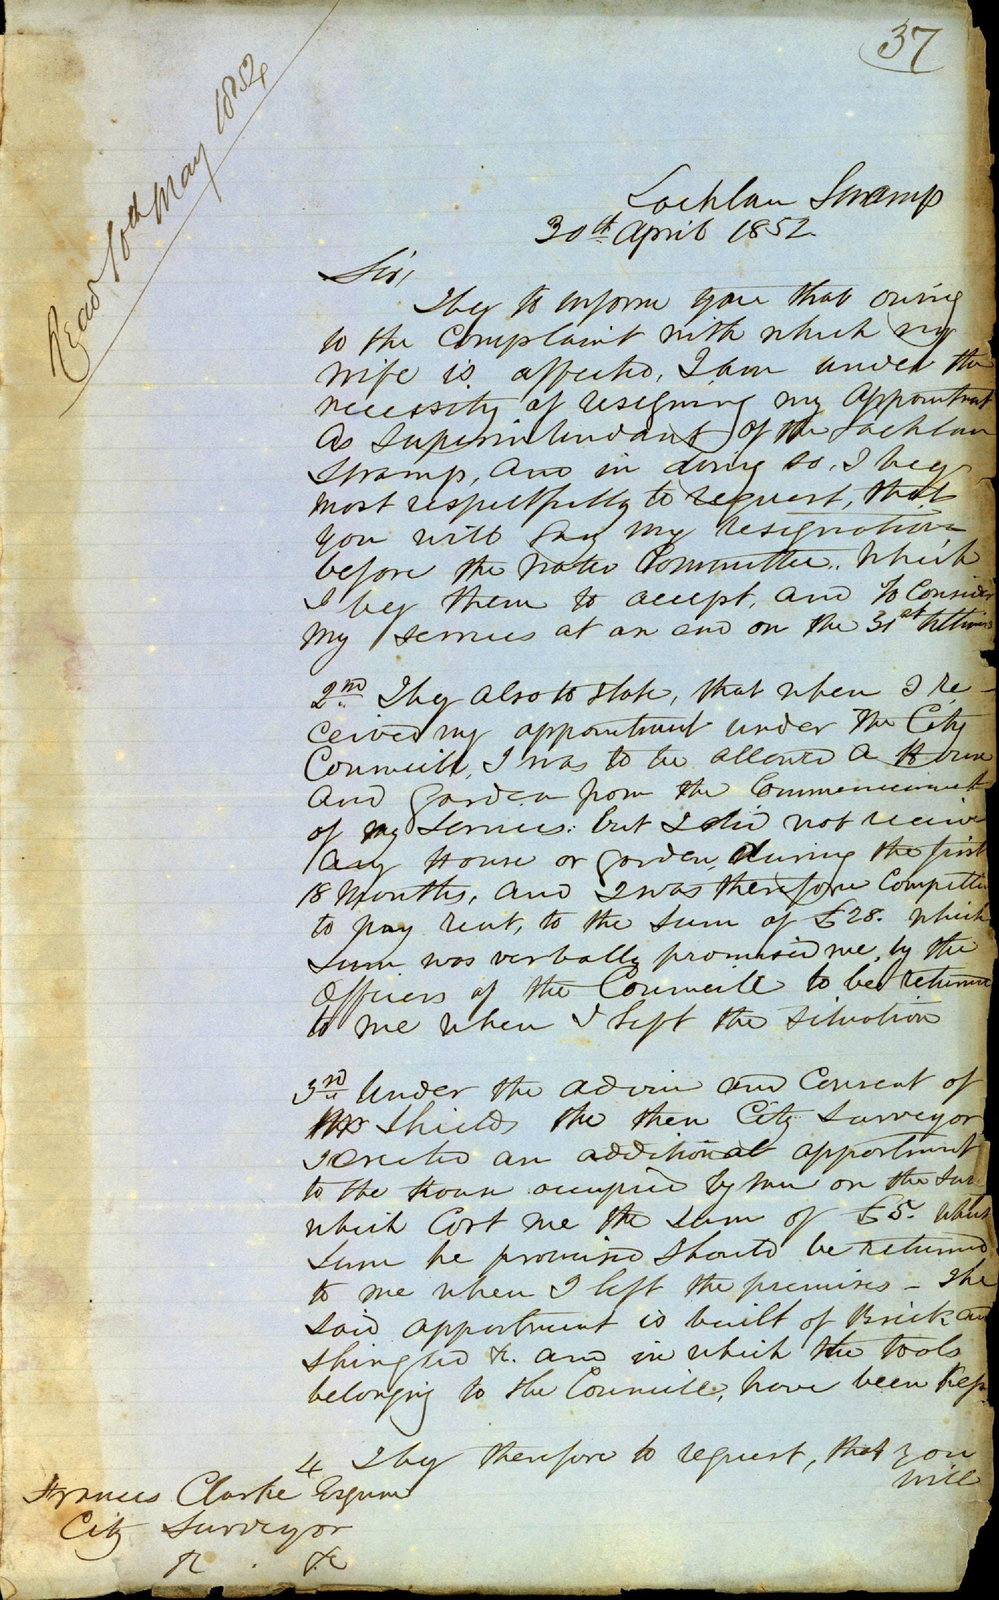 37
Read 10th May 1852
Lochlan Swamp
30th April 1852
Sir,
I beg to inform you that owing
to the Complaint with which my
wife is affected, I am under the
necessity of resigning my Appointment
As Superintendant of the Lochlan
Swamp, And in doing so, I beg
most respectfully to request, that
you will lay my resignation
before the Water Committee. Which
I beg them to accept, and to Consider
my services at an end on the 31st
2nd I beg Also to state, that when I re-
ceived my appointment under The City
Councill, I was to be allowed a House
And Garden from the Commencement
of my Services: but I did not receive
Any House or Garden, during the first
18 Months, And I was therefore Compelled
to pay rent, to the Sum of £28. which
Sum was verbally promised me, by the
Officers of the Councill to be returned
to me when I left the Situation
3rd Under the advice and Consent of
Mr Shields the then City Surveyor
I erected an additional appartment
to the House occupied by me on the
which Cost me the sum of £5. which
Sum he promised should be returned
to me when I left the premises - The
Said appartment is built of Brick and
Shingled &c. and in which the tools
belonging to the Councill, have been kept.
4 I beg therefore to request, that you
will
Francis Clarke Esquire
City Surveyor
&c. &c